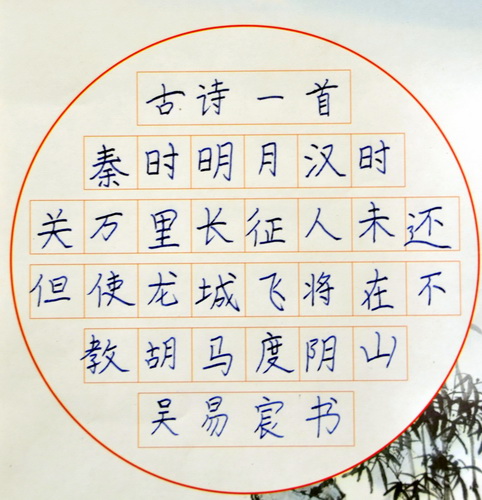 古诗一首
秦时明月汉时
关万里长征人未还
但使龙城飞将在不
教胡马度阴山
吴易宸书